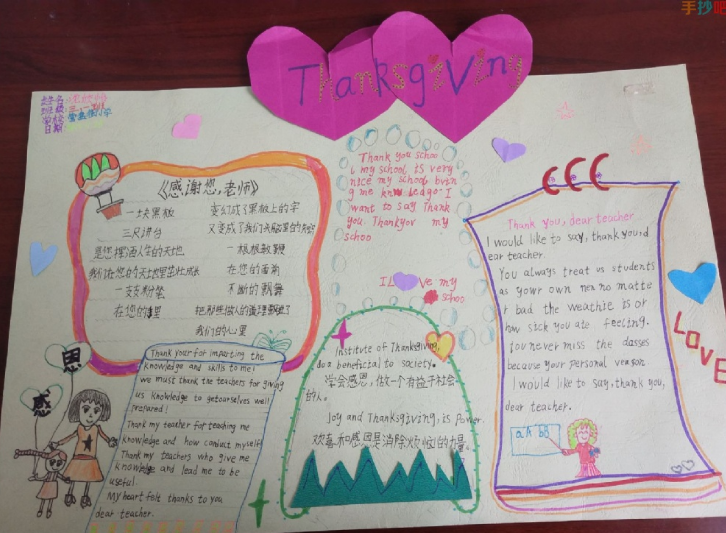 手抄吧
Thanksgiving
姓名:
班级:三(一)班
学校:
日期:
《感谢您,老师》
一块黑板 变幻成了黑板上的字
三尺讲台 又变成了我们
是您挥洒人生的天地 一根根教鞭
我们在您的天地里茁壮成长 在您的面前
一支支粉笔 不断的飘舞
在您的里 把那些做人的道理
我们的心里
Thank you schoo
l my school is very
nice my school bvsn
g me knowledge I
want to say thank
you. Thankyou my
schoo
I Love my
schoo
Thank you, dear teacher
I would like to say, thank you, d
ear teacher.
You always treat us students
as your own men no matte
r bad the weathie is or
how sick you ate feeting.
You never miss the dasses
because your personal veason
I would like to say, thank you,
dear teacher.
LOVE
感
恩
Thank your for imparting the
knowledge and skills to me!
we must thank the teachers for giving
us knowledge to getourselves well
prepared!
Thank my teacher for teaching me
knowledge and how conduct myself
Thank my teachers who give me
knowledge and lead me to be
useful.
My heart fole thanks to you
dear teacher.
Institute of Thanksgiving,
do a benefictal to society.
学会感恩,做一个有益于社会
的人。
Joy and Thanksgiving, is Power.
欢喜和感恩是消除烦恼的力量。